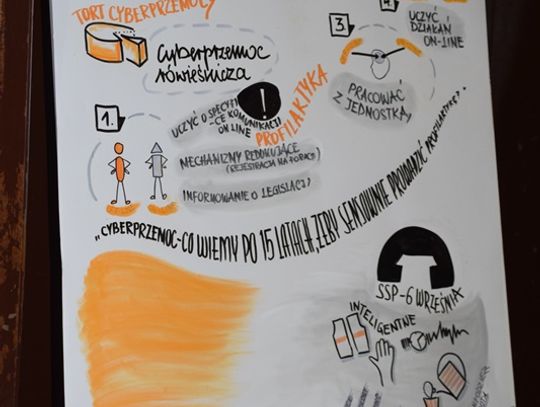 TORT CYBERPRZEMOCY
Cyberprzemoc
rówieśnicza
1.
UCZYĆ O SPECYFI-
-CE KOMUNIKACJI
ON LINE
!
PROFILAKTYKA
MECHANIZMY REDUKUJĄCE
(REJESTRACJA NA FORACH)
INFORMOWANIE O LEGISLACJI
3.
4.
UCZYĆ
DZIAŁAŃ
ON-LINE
PRACOWAĆ
Z JEDNOSTKĄ
„CYBERPRZEMOC-CO WIEMY PO 15 LATACH, ŻEBY SENSOWNIE PROWADZIĆ PROFILAKTYKĘ?"
SSP-6 WRZEŚNIA
INTELIGENTNE